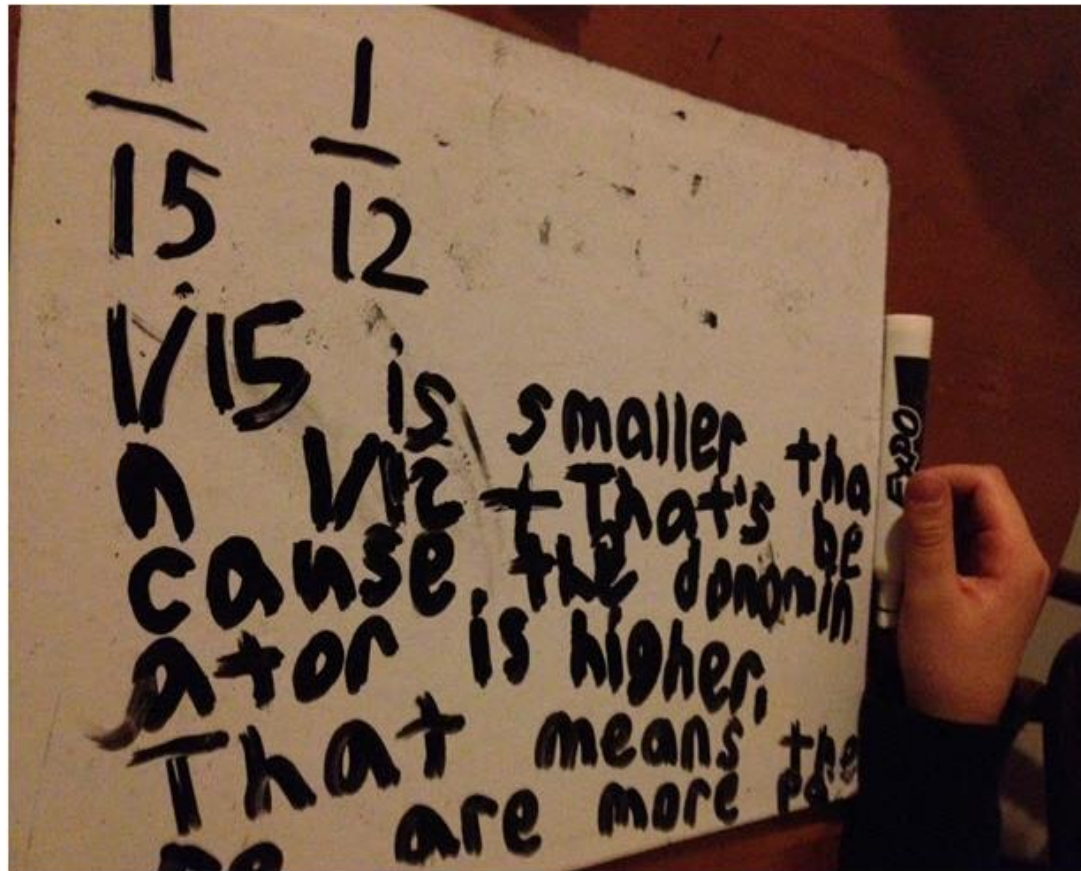 1 1
15 12
1/15 is smaller tha
n 1/12 That's be
cause the donomin
ator is higher.
That means the
are more
EXPO